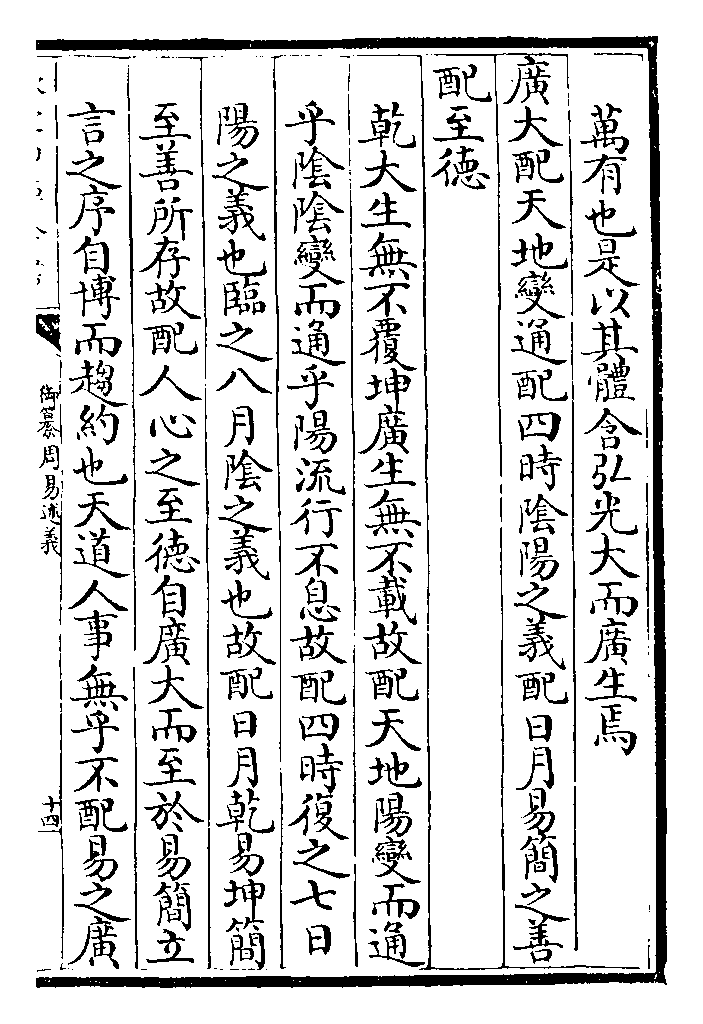 萬有也是以其體含弘光大而廣生焉
廣大配天地變通配四時陰陽之義配日月易簡之善
配至德
乾大生無不覆坤廣生無不載故配天地陽變而通
乎陰陰變而通乎陽流行不息故配四時復之七日
陽之義也臨之八月陰之義也故配日月乾易坤簡
至善所存故配人心之至德自廣大而至於易簡立
言之序自博而趨約也天道人事無乎不配易之廣
御纂周易述義
十四